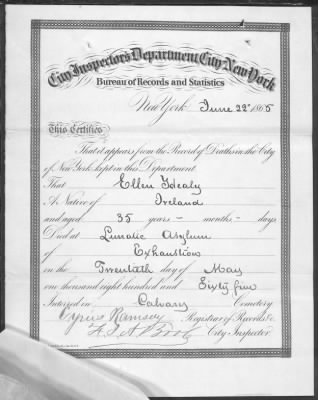 City Inspector's Department, City New York
Bureau of Records and Statistics
New York June 22d 1865
This Certifies
That it appears from the Record of Deaths in the City
of New York kept in this Department
That Ellen Healy
A Native of Ireland
and aged 35 years - months - days
Died at Lunatic Asylum
of Exhaustion
on the Twentieth day of May
one thousand eight hundred and Sixty five
Interred in Calvary Cemetery
Cyrus Ramsey Registrar of Records &c
City Inspector